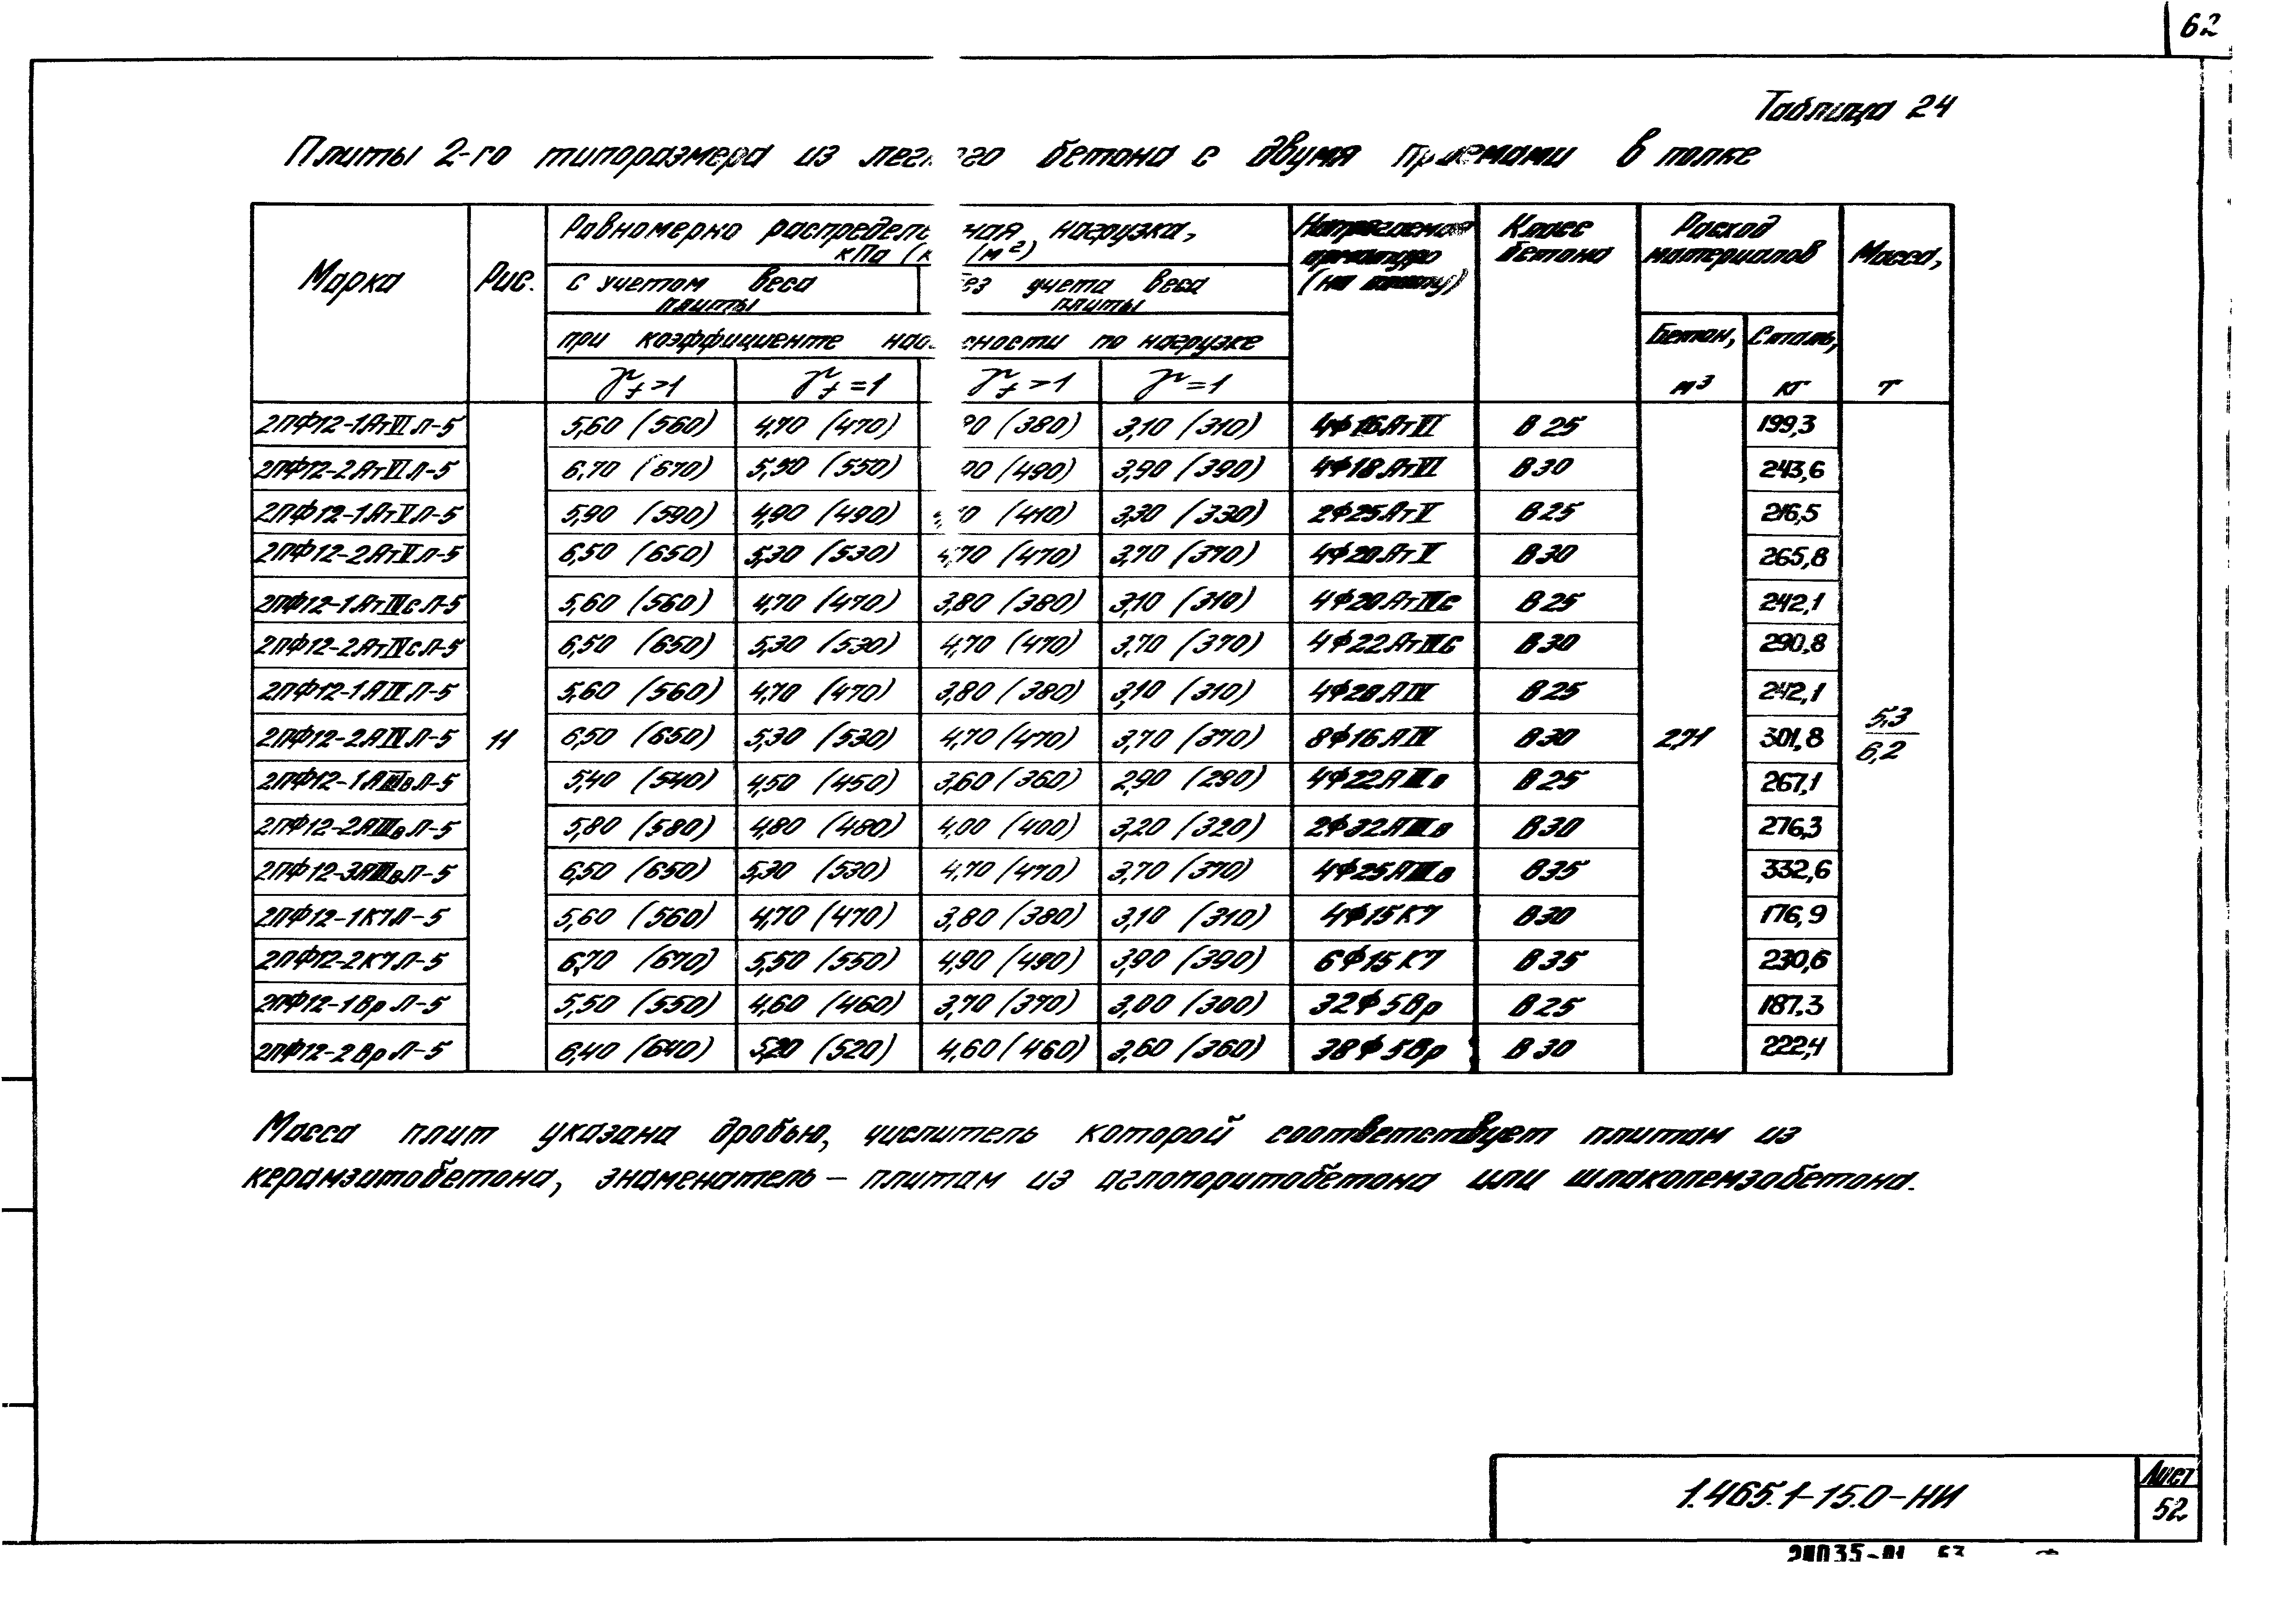 62
Таблица 24
Плиты 2-го типоразмера из легкого бетона с двумя проемами в полке
Марка
Рис.
Равномерно распределенная нагрузка,
кПа (кгс/м²)
с учетом веса
плиты
без учета веса
плиты
при коэффициенте надежности по нагрузке
γf >1
γf =1
γf >1
γ =1
Напрягаемая
арматура
(на плиту)
Класс
бетона
Расход
материалов
Бетон,
м³
Сталь,
кг
Масса,
т
2ПФ12-1АтVIЛ-5 5,60 (560) 4,70 (470) (380) 3,10 (310) 4Ф16АтVI В25 199,3
2ПФ12-2АтVIЛ-5 6,70 (670) 5,50 (550) (490) 3,90 (390) 4Ф18АтVI В30 243,6
2ПФ12-1АтVЛ-5 5,90 (590) 4,90 (490) (410) 3,30 (330) 2Ф25АтV В25 216,5
2ПФ12-2АтVЛ-5 6,50 (650) 5,30 (530) 4,70 (470) 3,70 (370) 4Ф20АтV В30 265,8
2ПФ12-1АтIVсЛ-5 5,60 (560) 4,70 (470) 3,80 (380) 3,10 (310) 4Ф20АтIVс В25 242,1
2ПФ12-2АтIVсЛ-5 6,50 (650) 5,30 (530) 4,70 (470) 3,70 (370) 4Ф22АтIVс В30 290,8
2ПФ12-1АIVЛ-5 5,60 (560) 4,70 (470) 3,80 (380) 3,10 (310) 4Ф20АIV В25 242,1
2ПФ12-2АIVЛ-5 11 6,50 (650) 5,30 (530) 4,70 (470) 3,70 (370) 8Ф16АIV В30 2,71 301,8 5,3/6,2
2ПФ12-1АIIIвЛ-5 5,40 (540) 4,50 (450) 3,60 (360) 2,90 (290) 4Ф22АIIIв В25 267,1
2ПФ12-2АIIIвЛ-5 5,80 (580) 4,80 (480) 4,00 (400) 3,20 (320) 2Ф32АIIIв В30 276,3
2ПФ12-3АIIIвЛ-5 6,50 (650) 5,30 (530) 4,70 (470) 3,70 (370) 4Ф25АIIIв В35 332,6
2ПФ12-1К7Л-5 5,60 (560) 4,70 (470) 3,80 (380) 3,10 (310) 4Ф15К7 В30 176,9
2ПФ12-2К7Л-5 6,70 (670) 5,50 (550) 4,90 (490) 3,90 (390) 6Ф15К7 В35 230,6
2ПФ12-1ВрЛ-5 5,50 (550) 4,60 (460) 3,70 (370) 3,00 (300) 32Ф5Вр В25 187,3
2ПФ12-2ВрЛ-5 6,40 (640) 5,20 (520) 4,60 (460) 3,60 (360) 38Ф5Вр В30 222,4
Масса плит указана дробью, числитель которой соответствует плитам из
керамзитобетона, знаменатель – плитам из аглопоритобетона или шлакопемзобетона.
1.465.1-15.0-НИ
Лист
52